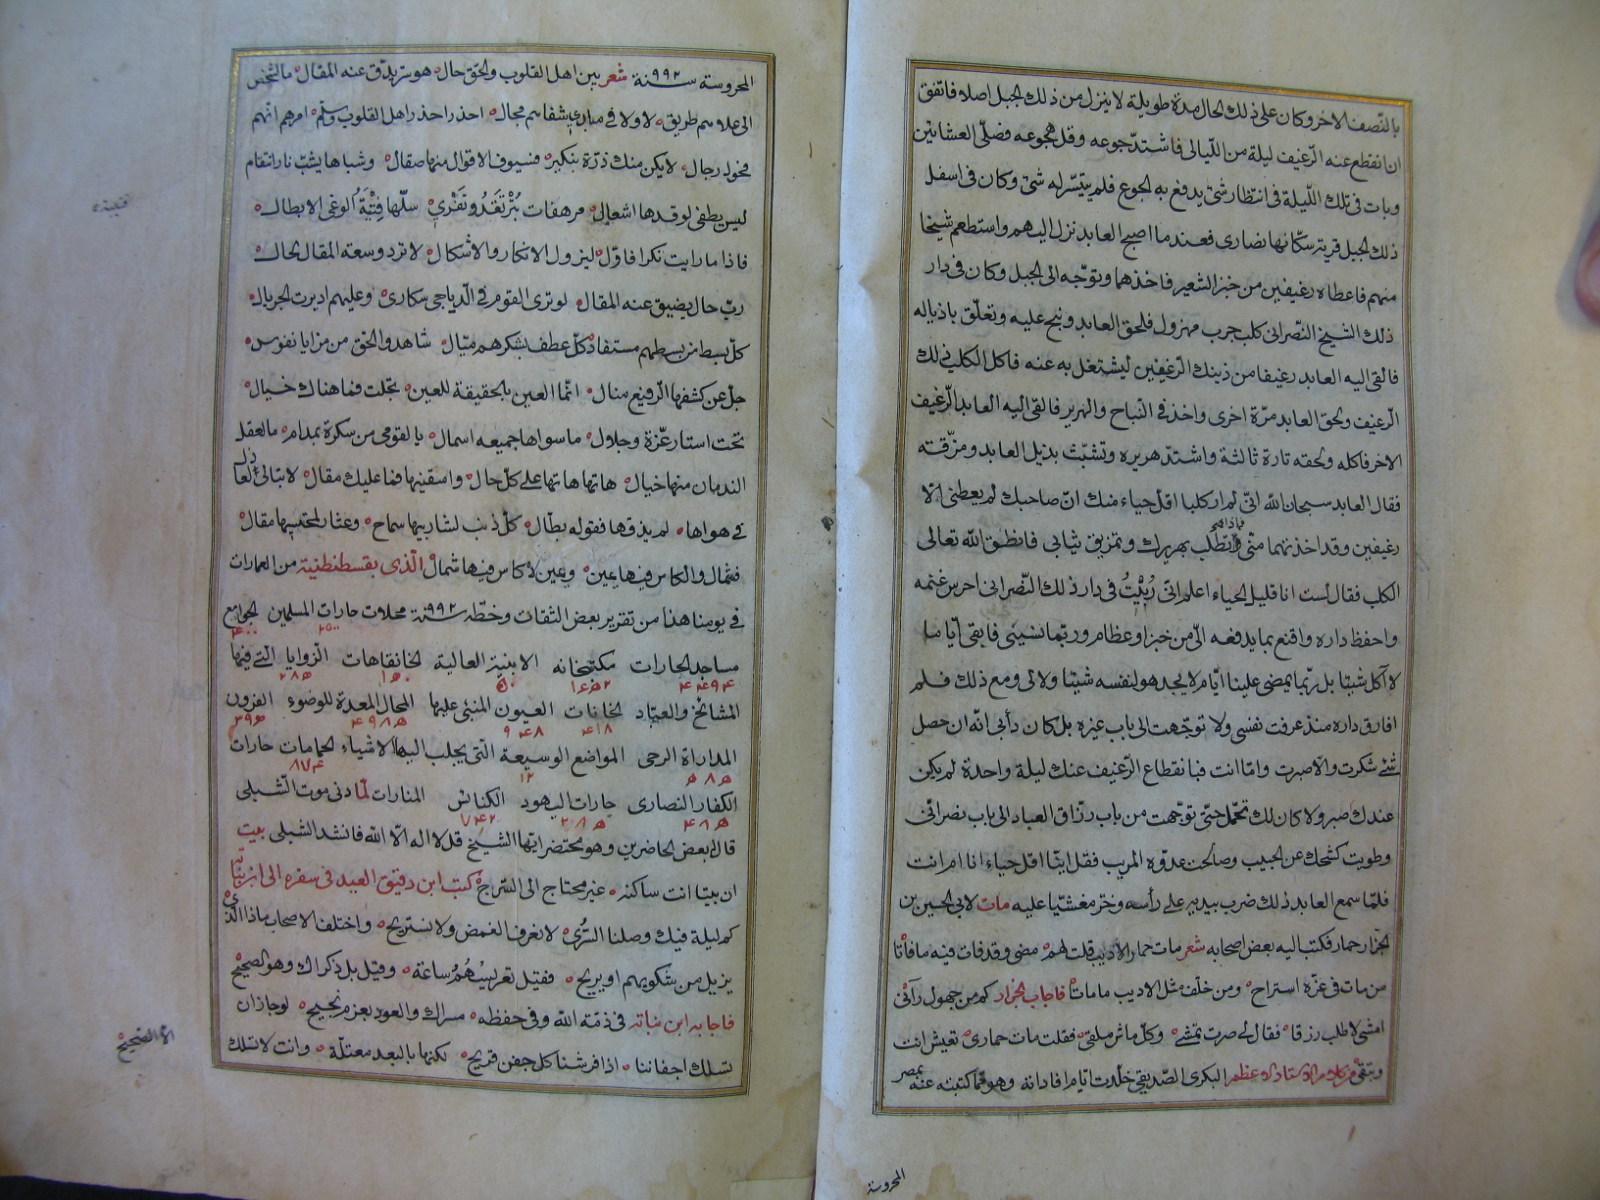 بالنّصف الاخر وكان على ذلك الحال مدة طويلة لا ينزل من ذلك الجبل اصلا فاتفق
ان انقطع عنه الرّغيف ليلة من اللّيالى فاشتدّ جوعه وقلّ هجوعه فصلّى العشائين
وبات فى تلك اللّيلة فى انتظار شئ يدفع به الجوع فلم يتيسّر له شئ وكان فى اسفل
ذلك الجبل قرية سكّانها نصارى فعند ما اصبح العابد نزل اليهم واستطعم شيخا
منهم فاعطاه رغيفين من خبز الشعير فاخذهما وتوجّه الى الجبل وكان فى دار
ذلك الشيخ النّصرانى كلب جرب مهزول فلحق العابد ونبح عليه وتعلّق باذياله
فالقى اليه العابد رغيفا من ذينك الرّغيفين ليشتغل به عنه فاكل الكلب ذلك
الرّغيف ولحق العابد مرّة اخرى واخذ فى النّباح والهرير فالقى اليه العابد الرّغيف
الاخر فاكله ولحقه تارة ثالثة واشتدّ هريره وتشبّث بذيل العابد ومزّقته
فقال العابد سبحان الله انّى لم ار كلبا اقلّ حياء منك انّ صاحبك لم يعطنى الّا
رغيفين وقد اخذتهما منّى فماذا تطلب بهريرك وتمزيق ثيابى فانطق الله تعالى
الكلب فقال لست انا قليل الحياء اعلم انّى رُبّيْتُ فى دار ذلك النّصرانى احرس غنمه
واحفظ داره واقنع بما يدفعه الىّ من خبز او عظام وربّما نسينى فابقى ايّاما
لا آكل شيئا بل ربّما يمضى علينا ايّام لا يجد هو لنفسه شيئا ولا لى ومع ذلك فلم
افارق داره منذ عرفت نفسى ولا توجّهت الى باب غيره بل كان دأبى انّه ان حصل
شئ شكرت والّا صبرت وامّا انت فبانقطاع الرّغيف عنك ليلة واحدة لم يكن
عندك صبر ولا كان لك تحمّل حتّى توجّهت من باب رزّاق العباد الى باب نصرانّى
وطويت كشحك عن الحبيب وصالحت عدوّه المريب فقل ايّنا اقل حياء انا ام انت
فلمّا سمع العابد ذلك ضرب بيديه على رأسه وخرّ مغشّيا عليه مات لابى الحسين بن
الجزّار حمار فكتب اليه بعض اصحابه شعر مات حمار الاديب قلت لهم مضى وقد فات فيه ما فاتا
من مات فى عزّة استراح ومن خلّف مثل الاديب ما ماتا فاجاب الجزّار كم من جهول رآنى
امشى لاطلب رزقا فقال لى صرت تمشى وكلّ ماش ملقى فقلت مات حمارى تعيش انت
وتبقى من كلام الاستاذ الاعظم البكرى الصّديقى خلّدت ايّام افاداته وهو ممّا كتبته عنه بمصر
المحروسة
المحروسة سنة ٩٩٢ شعر بين اهل القلوب والحق حال هو سرّ يدّق عنه المقال ما لشخص
الى علاهم طريق لا ولا فى مبادى شفاهم مجال احذر احذر اهل القلوب وسلّم امرهم انهم
فحول رجال لا يكن منك ذرّة بنكير فسيوف الاقوال منها صقال وشباها يشبّ نار انتقام
ليس يطفى لوقدها اشعال مرهفات بُتْرٌ تَقُدُّ وتَفْرِى سلّها فِتْيَةُ الوغى الابطال
فاذا ما رايت نكرا فاوّل ليزول الانكار والاشكال لا ترد وسعة المقال لحال
ربّ حال يضيق عنه المقال لو ترى القوم فى الدّياجى سكارى وعليهم اديرت الجريال
كلّ بسط من بسطهم مستفاد كلّ عطف بشكرهم ميّال شاهدوا الحق من مزايا نفوس
جلّ عن كشفها الرّفيع منال انّما العين بالحقيقة للعين تجلّت فما هناك خيال
تحت استار عزّة وجلال ما سواها جميعه اسمال يا لقومى من سكرة بمدام ما لعقل
الندمان منها خيال هاتها هاتها على كلّ حال واسقنيها فما عليك مقال لا تبالى العاذل
فى هواها لم يذقها فقوله بطّال كلّ ذنب لشاربيها سماح وعثار لمحتسيها مقال
فثمال والكاس فيها يمين ويمين لا كاس فيها شمال الّذى بقسطنطنية من العمارات
فى يومنا هذا من تقرير بعض الثقات وخطّه سنة ٩٩٢ محلات حارات المسلمين الجوامع
مساجد الحارات مكتبخانه الابنية العالية الخانقاهات الزّوايا الّتى فيها
المشائخ والعبّاد الخانات العيون المنبنى عليها المحال المعدة للوضوء الفرون
المداراة الرحى المواضع الوسيعة الّتى يجلب اليها الاشياء الحمامات حارات
الكفار النصارى حارات اليهود الكنائس المنارات لمّا دنى موت الشّبلى
قال بعض الحاضرين وهو محتضر ايها الشيخ قل لا اله الّا الله فانشد الشبلى بيت
ان بيتا انت ساكنه غير محتاج الى السّرج كتب ابن دقيق العيد فى سفره الى ابن نباتة
كم ليلة فيك وصلنا السُّرى لا نعرف الغمض ولا نستريح واختلف الاصحاب ماذا الّذى
يزيل من شكويهم او يريح فقيل تعريسُهُمُ ساعة وقيل بل ذكراك وهو الصّحيح
فاجابه ابن نباته فى ذمّة الله وفى حفظه مسراك والعود بعزم نجيح لو جاز ان
تسلك اجفاننا اذا فرشنا كل جفن قريح لكنها بالبعد معتلّة وانت لا تسلك
الّا الصّحيح